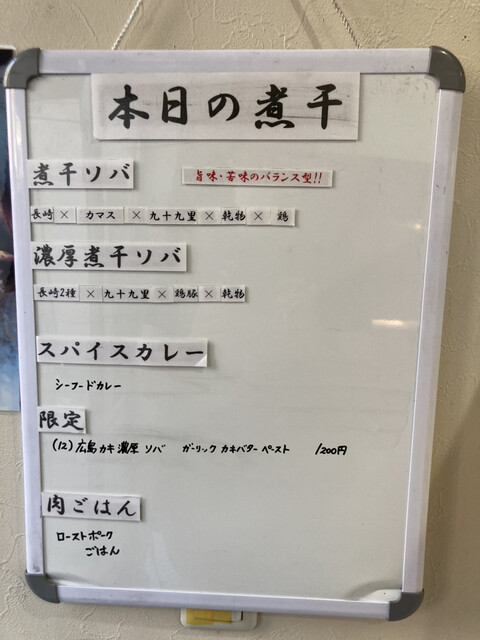 本日の煮干
煮干ソバ 旨味・苦味のバランス型!!
長崎 × カマス × 九十九里 × 乾物 × 鶏
濃厚煮干ソバ
長崎2種 × 九十九里 × 鶏豚 × 乾物
スパイスカレー
シーフードカレー
限定
(12) 広島カキ濃厚ソバ ガーリックカキバターペースト 1200円
肉ごはん
ローストポーク
ごはん